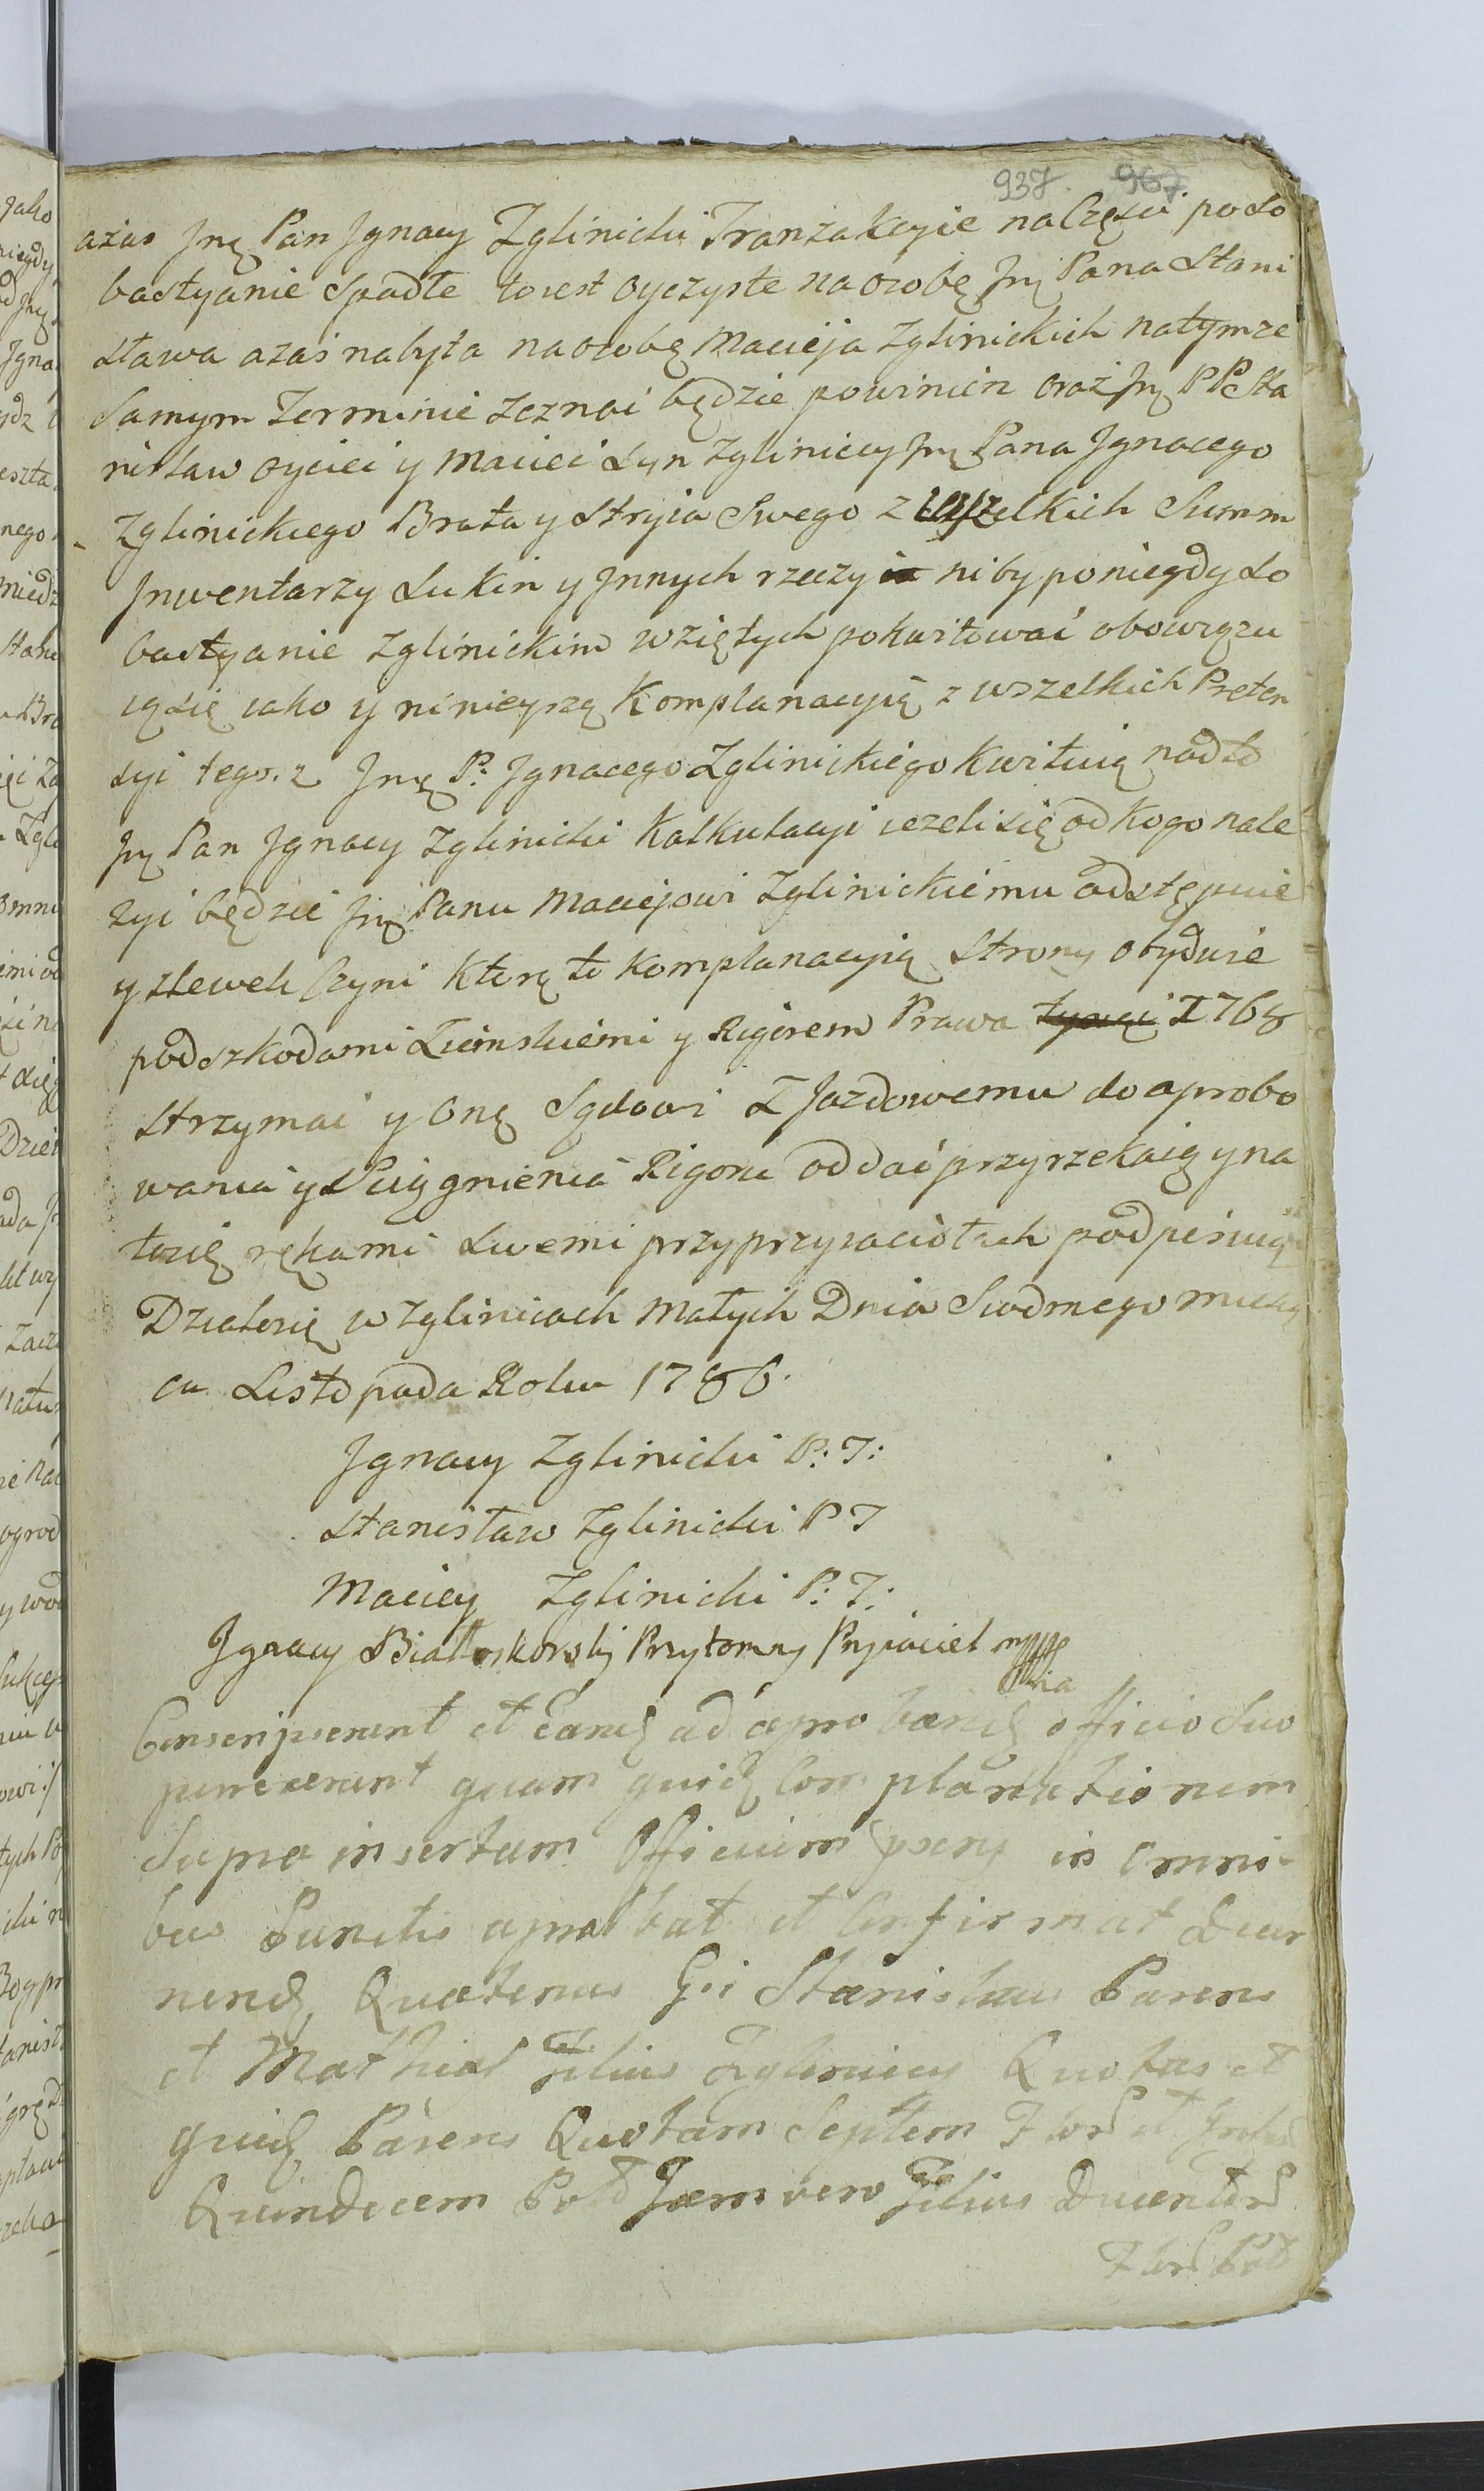 937. 967
azas Jmę Pan Jgnacy Zglinicki Tranzakcyie na Części po So
bastyanie Spadłe to iest oyczyste na osobę Jmę Pana Stani
sława azas nabyta na osobę Macieja Zglinickich natymze
Samym Terminie zeznać będzie powinien oraz Jmę PP Sta
nisław oyciec y Maciei Syn Zgliniccy Jmę Pana Jgnacego
Zglinickiego Brata y Stryia Swego z wszelkich Summ
Jnwentarzy Sukin y Jnnych rzeczy niby po niegdy So
bastyanie Zglinickim wziętych pokwitować obowięzu
ią się iako y ninieyszą Komplanacyią z wszelkich Preten
syi tegoz Jmę P: Jgnacego Zglinickiego kwituią nad to
Jmę Pan Jgnacy Zglinicki Kalkulacyi iezeli się od kogo nale
zyć będzie Jmę Panu Maciejowi Zglinickiemu odstępuie
y zlewek Czyni Którę to Komplanacyią Strony obydwie
pod szkodami Ziemskiemi y Rigorem Prawa 1768
strzymać y Onę Sądowi Zjazdowemu do aprobo
wania y Sciągnienia Rigoru oddać przyrzekaią y na
to się rękami Swemi przy przyiaciołach podpisuią
Działosię w Zglinicach Małych Dnia Siodmego miesią
ca Listopada Roku 1786.
Jgnacy Zglinicki P: J:
Stanisław Zglinicki P J
Maciey Zglinicki P: J:
Jgnacy Białoskorski Przytomny Przyiaciel mppe
Conscripserunt et Eandę ad aprobandę officio Suo
porrexerunt quam quidę Complanationem
Supra insertam Officium psens in Omni-
bus Punctis aprobat et Confirmat Decer
nendę Quatenus Gsi Stanislaus Parens
et Mathias Filius Zgliniccy Quotas et
quidę Parens Quotam Septem Flor et
Quindecem Pol Jam vero Filius Ducentor
Flor Pol